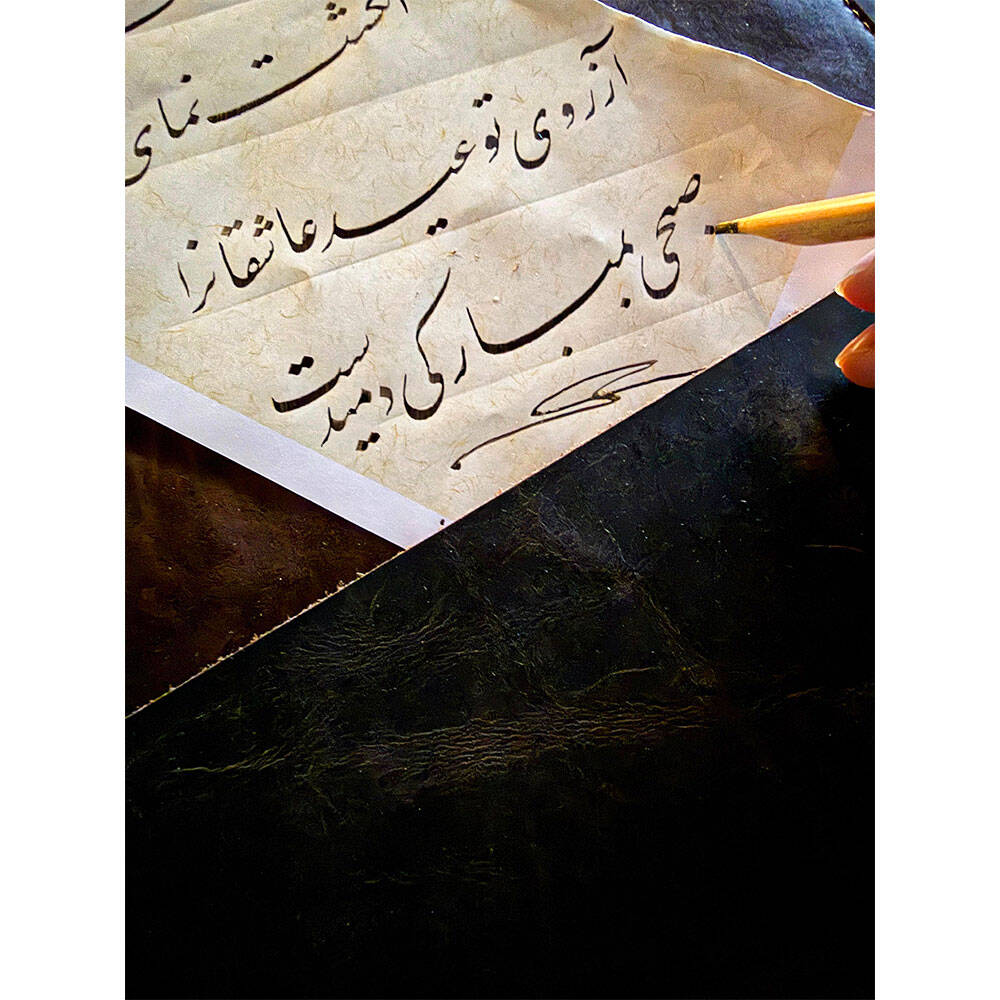 انگشت نمای
آرزوی تو عید عاشقانرا
صبحی بمبارکی دمیدست